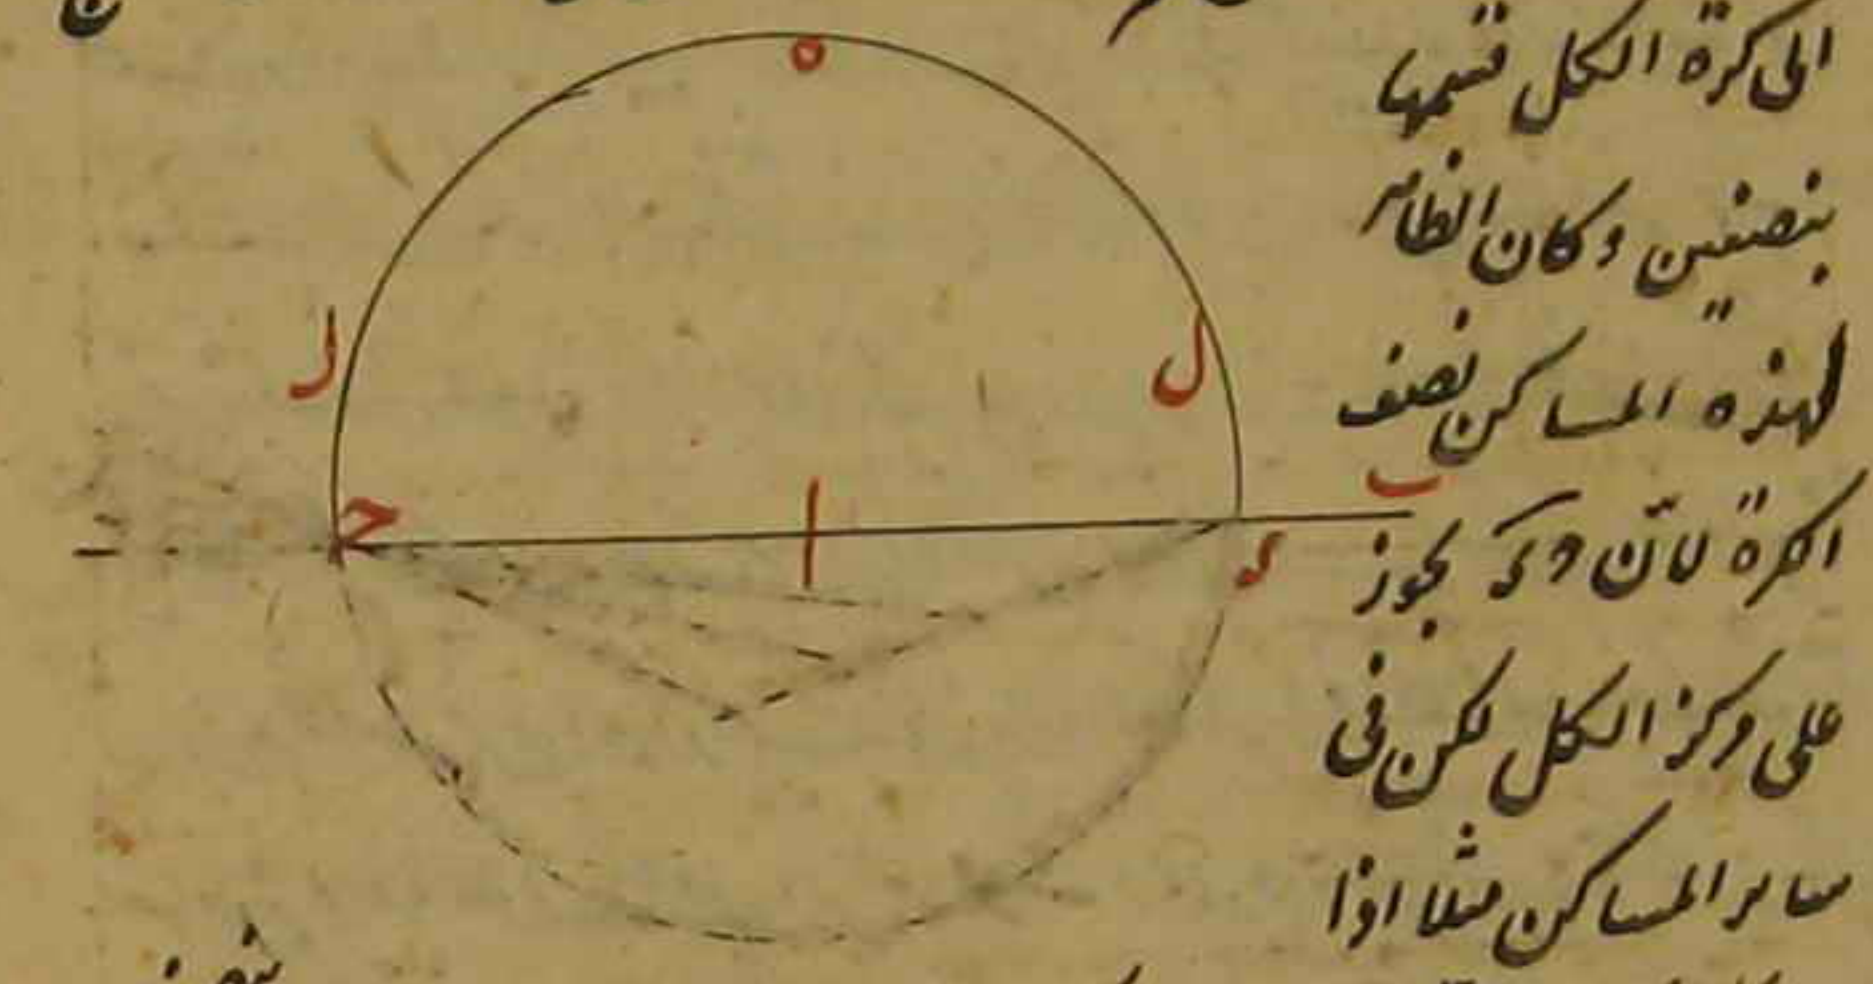 الى كرة الكل قسمها
بنصفين وكان الظاهر
لهذه المساكن نصف
الكرة لأن
يجوز
على مركز الكل لكن فى
ساير المساكن مثلا اذا
ه
ر
ل
ب
ح
ا
د